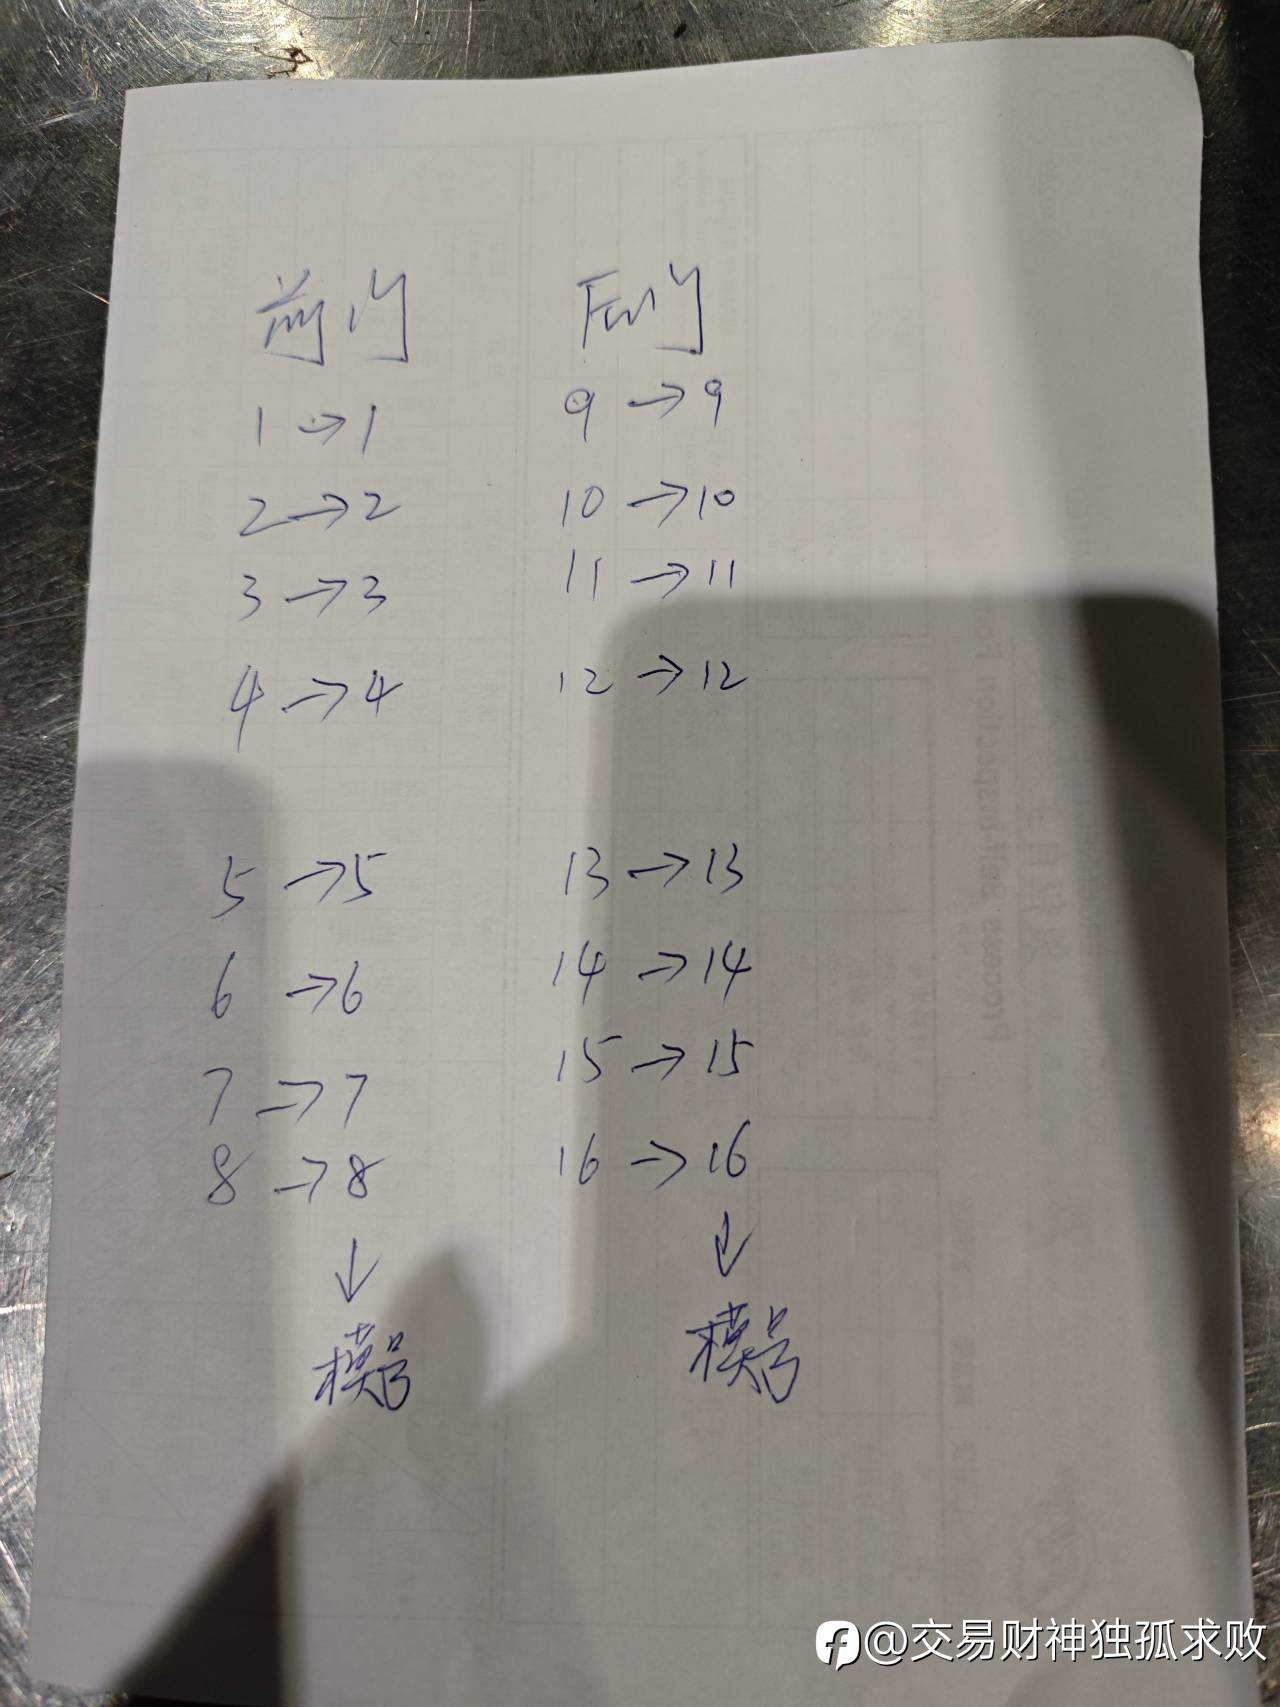 前门
1→1
2→2
3→3
4→4
5→5
6→6
7→7
8→8
↓
模号
后门
9→9
10→10
11→11
12→12
13→13
14→14
15→15
16→16
↓
模号
Process Self-Inspection Form
@交易财神独孤求败